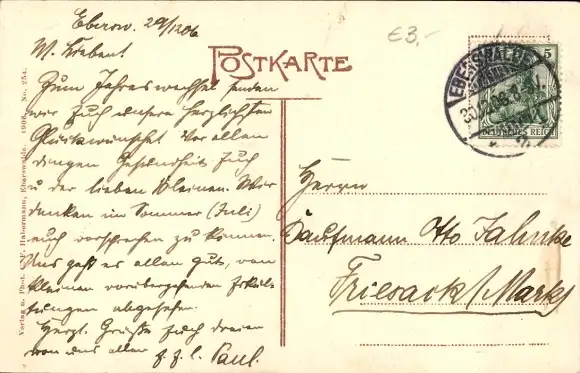 Ebersw. 29/12 06
M. Liebent
Zum Jahreswechsel senden
wir Euch unsere herzlichsten
Glückwünsche! Vor allen
Dingen Gesundheit Euch
u der lieben Kleinen. Wir
denken im Sommer (Juli)
auch vorsprechen zu können.
Uns geht es allen gut, von
kleinen vorübergehenden Erkäl-
tungen abgesehen.
Herzl. Grüße Euch dreien
von uns allen Paul.
€3,-
POSTKARTE
EBERSWALDE
5
DEUTSCHES REICH
Herrn
Kaufmann Otto Jahnke
Friesack/Mark
Verlag u. Phot. Habermann, Eberswalde. 1906. No. 254.